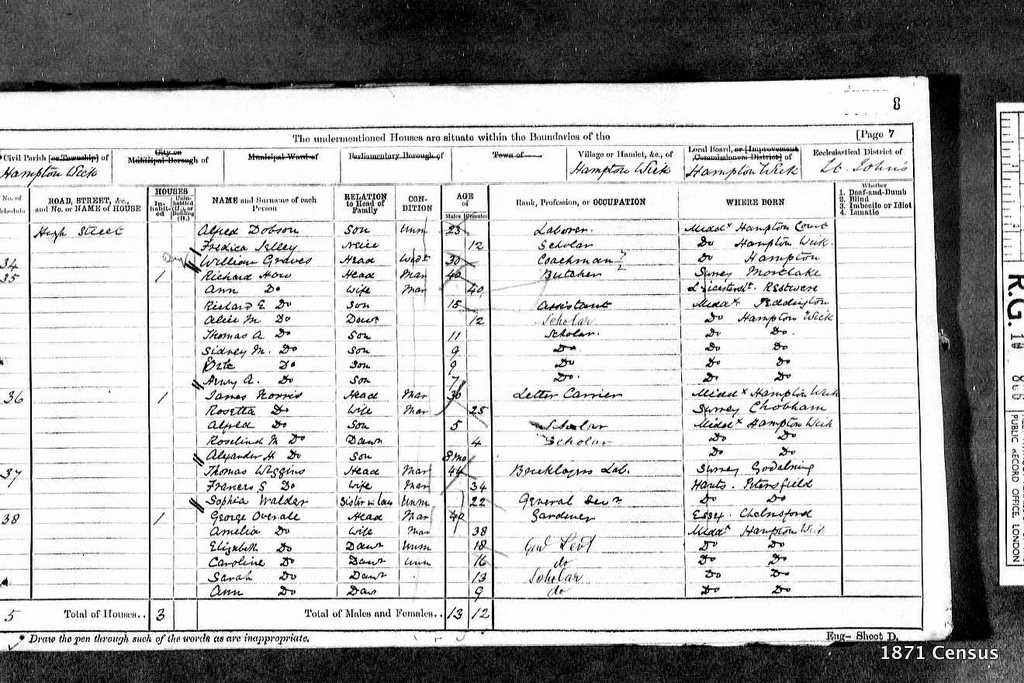 8
The undermentioned Houses are situate within the Boundaries of the [Page 7
Civil Parish [or Township] of City or Municipal Borough of Municipal Ward of Parliamentary Borough of Town of Village or Hamlet, &c., of Local Board, or [Improvement Commissioners District] of Ecclesiastical District of
Hampton Wick Hampton Wick Hampton Wick St. John's
No. of Schedule ROAD, STREET, &c., and No. or NAME of HOUSE HOUSES Inhabited Uninhabited (U.), or Building (B.) NAME and Surname of each Person RELATION to Head of Family CONDITION AGE of Males Females Rank, Profession, or OCCUPATION WHERE BORN Whether 1. Deaf-and-Dumb 2. Blind 3. Imbecile or Idiot 4. Lunatic
High Street Alfred Dobson Son Unm 23 Laborer Middx Hampton Court
Niece 12 Scholar Do Hampton Wick
34 William Graves Head 30 Coachman Do Hampton
35 1 Richard How Head Mar 40 Butcher Surrey Mortlake
Ann Do Wife Mar 40
Richard E. Do Son 15 Assistant Middx Teddington
Alice M. Do Daur 12 Scholar Do Hampton Wick
Thomas A. Do Son 11 Scholar Do Do
Sidney M. Do Son 9 Do Do Do
Do Son 9 Do Do Do
A. Do Son 7 Do Do Do
36 1 James Norris Head Mar 30 Letter Carrier Middx Hampton Wick
Rosetta Do Wife Mar 25 Surrey Chobham
Alfred Do Son 5 Scholar Middx Hampton Wick
Roselind M Do Daur 4 Scholar Do Do
Alexander H Do Son 8 mo Do Do
37 Thomas Wiggins Head Mar 44 Bricklayers Lab. Surrey Godalming
Frances S Do Wife Mar 34 Hants. Petersfield
Sophia Walder Sister in law Unm 22 General Servt Do Do
38 1 George Overale Head Mar 40 Gardener Essex Chelmsford
Amelia Do Wife Mar 38 Middx Hampton Wick
Elizabeth Do Daur Unm 18 Genl Servt Do Do
Caroline Do Daur Unm 16 do Do Do
Sarah Do Daur 13 Scholar Do Do
Ann Do Daur 9 do Do Do
5 Total of Houses.. 3 Total of Males and Females.. 13 12
* Draw the pen through such of the words as are inappropriate. Eng- Sheet D.
R.G. 10
PUBLIC RECORD OFFICE LONDON
1871 Census